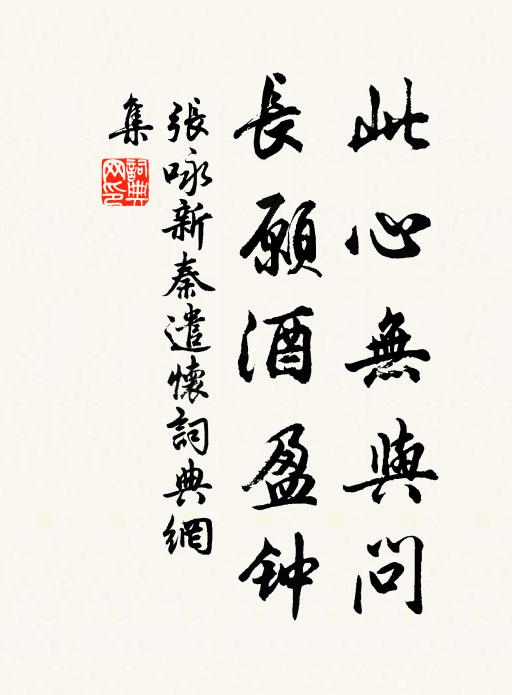 此心無與問
長願酒盈钟
張咏新秦遣懷詞典網
集
詞典
网印